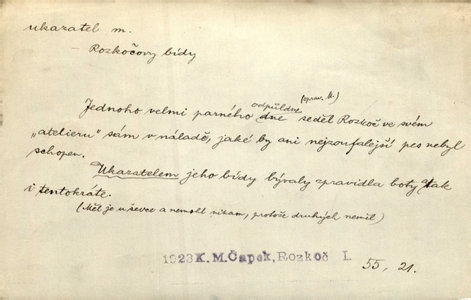 ukazatel m.
– Rozkočovy bídy
Jednoho velmi parného odpůldne (oprav. M.) dne seděl Rozkoč ve svém
„atelieru" sám v náladě, jaké by ani nejzoufalejší pes nebyl
schopen.
Ukazatelem jeho bídy bývaly zpravidla boty, tak
i tentokráte.
(Měl je u ševce a nemohl nikam, protože druhých neměl)
1923 K. M. Čapek, Rozkoč I. 55, 21.